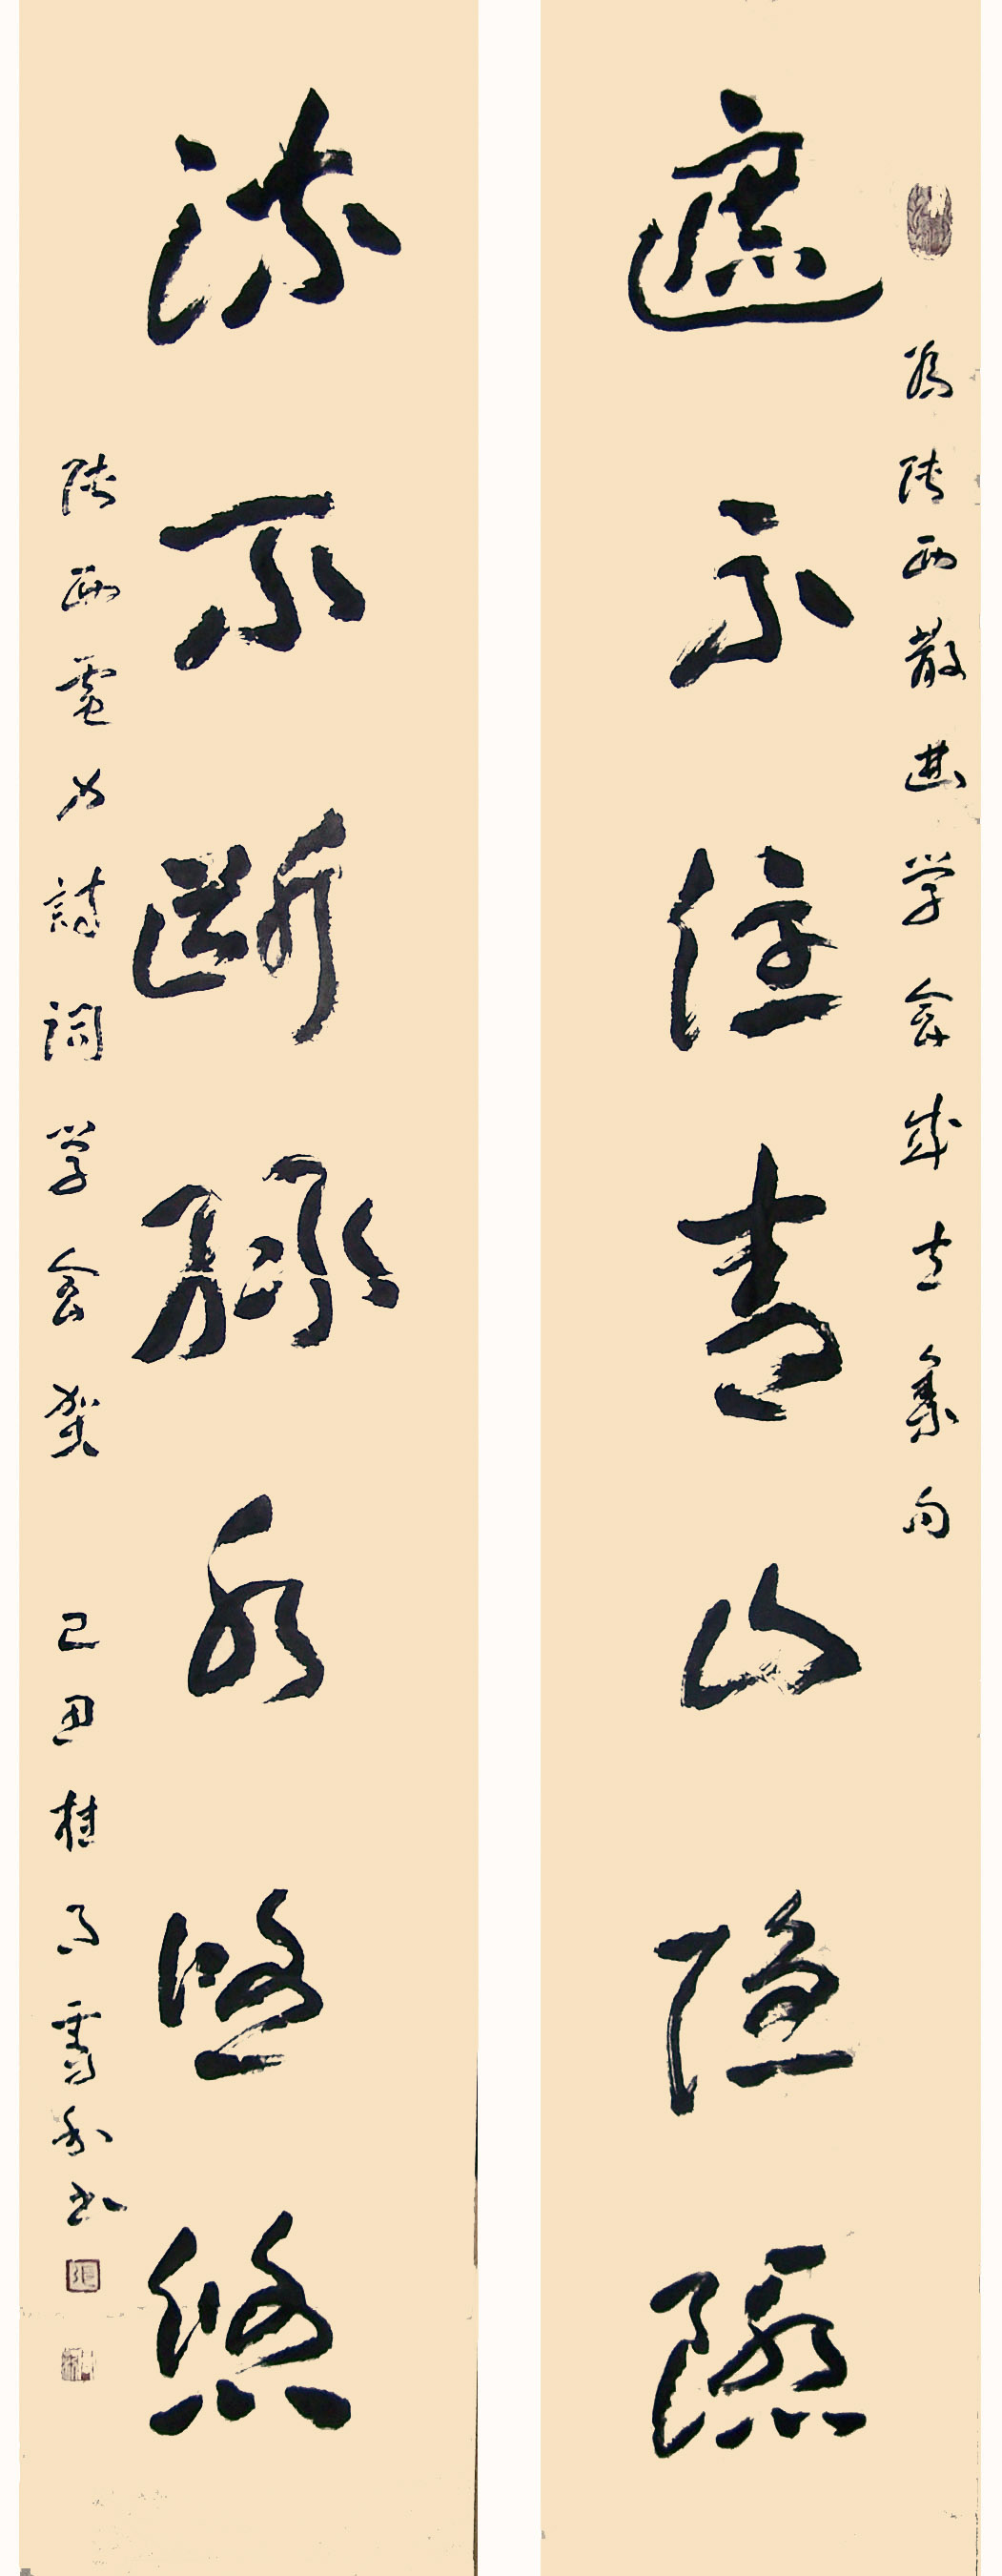 为陕西散曲学会成立集句
遮不住青山隐隐
流不断绿水悠悠
陕西电力诗词学会贺 己丑桂月雪利书